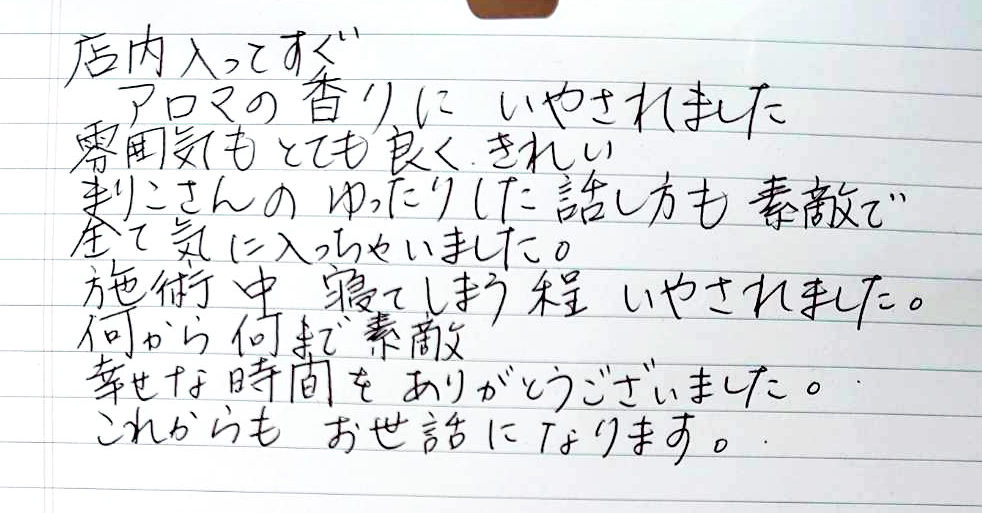 店内入ってすぐ
アロマの香りに いやされました
雰囲気もとても良く きれい
まりこさんの ゆったりした話し方も素敵で
全て気に入っちゃいました。
施術中 寝てしまう程 いやされました。
何から何まで素敵
幸せな時間を ありがとうございました。
これからも お世話になります。